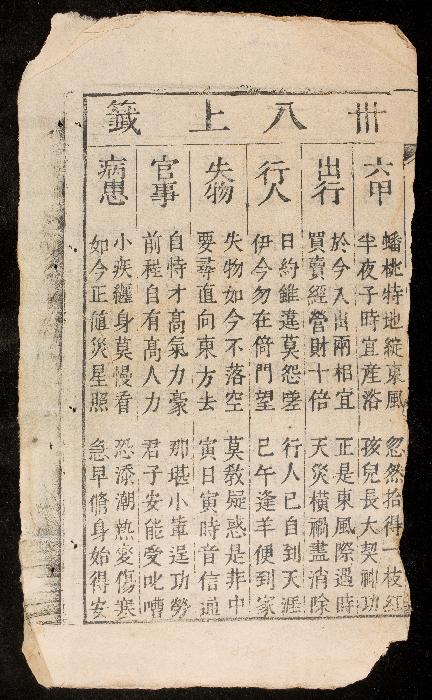 卌八上籤
六甲
蟠桃特地綻東風 忽然拾得一枝紅
半夜子時宜産浴 孩兒長大契神功
出行
於今入出兩相宜 正是東風際遇時
買賣經營財十倍 天災橫禍盡消除
行人
日約雖違莫怨嗟 行人已自到天涯
伊今勿在倚門望 巳午逢羊便到家
失物
失物如今不落空 莫教疑惑是非中
要尋直向東方去 寅日寅時音信通
官事
自恃才高氣力豪 那堪小輩逞功勞
前程自有高人力 君子安能受叱嘈
病患
小疾纏身莫慢看 恐添潮熱変傷寒
如今正值災星照 急早修身始得安